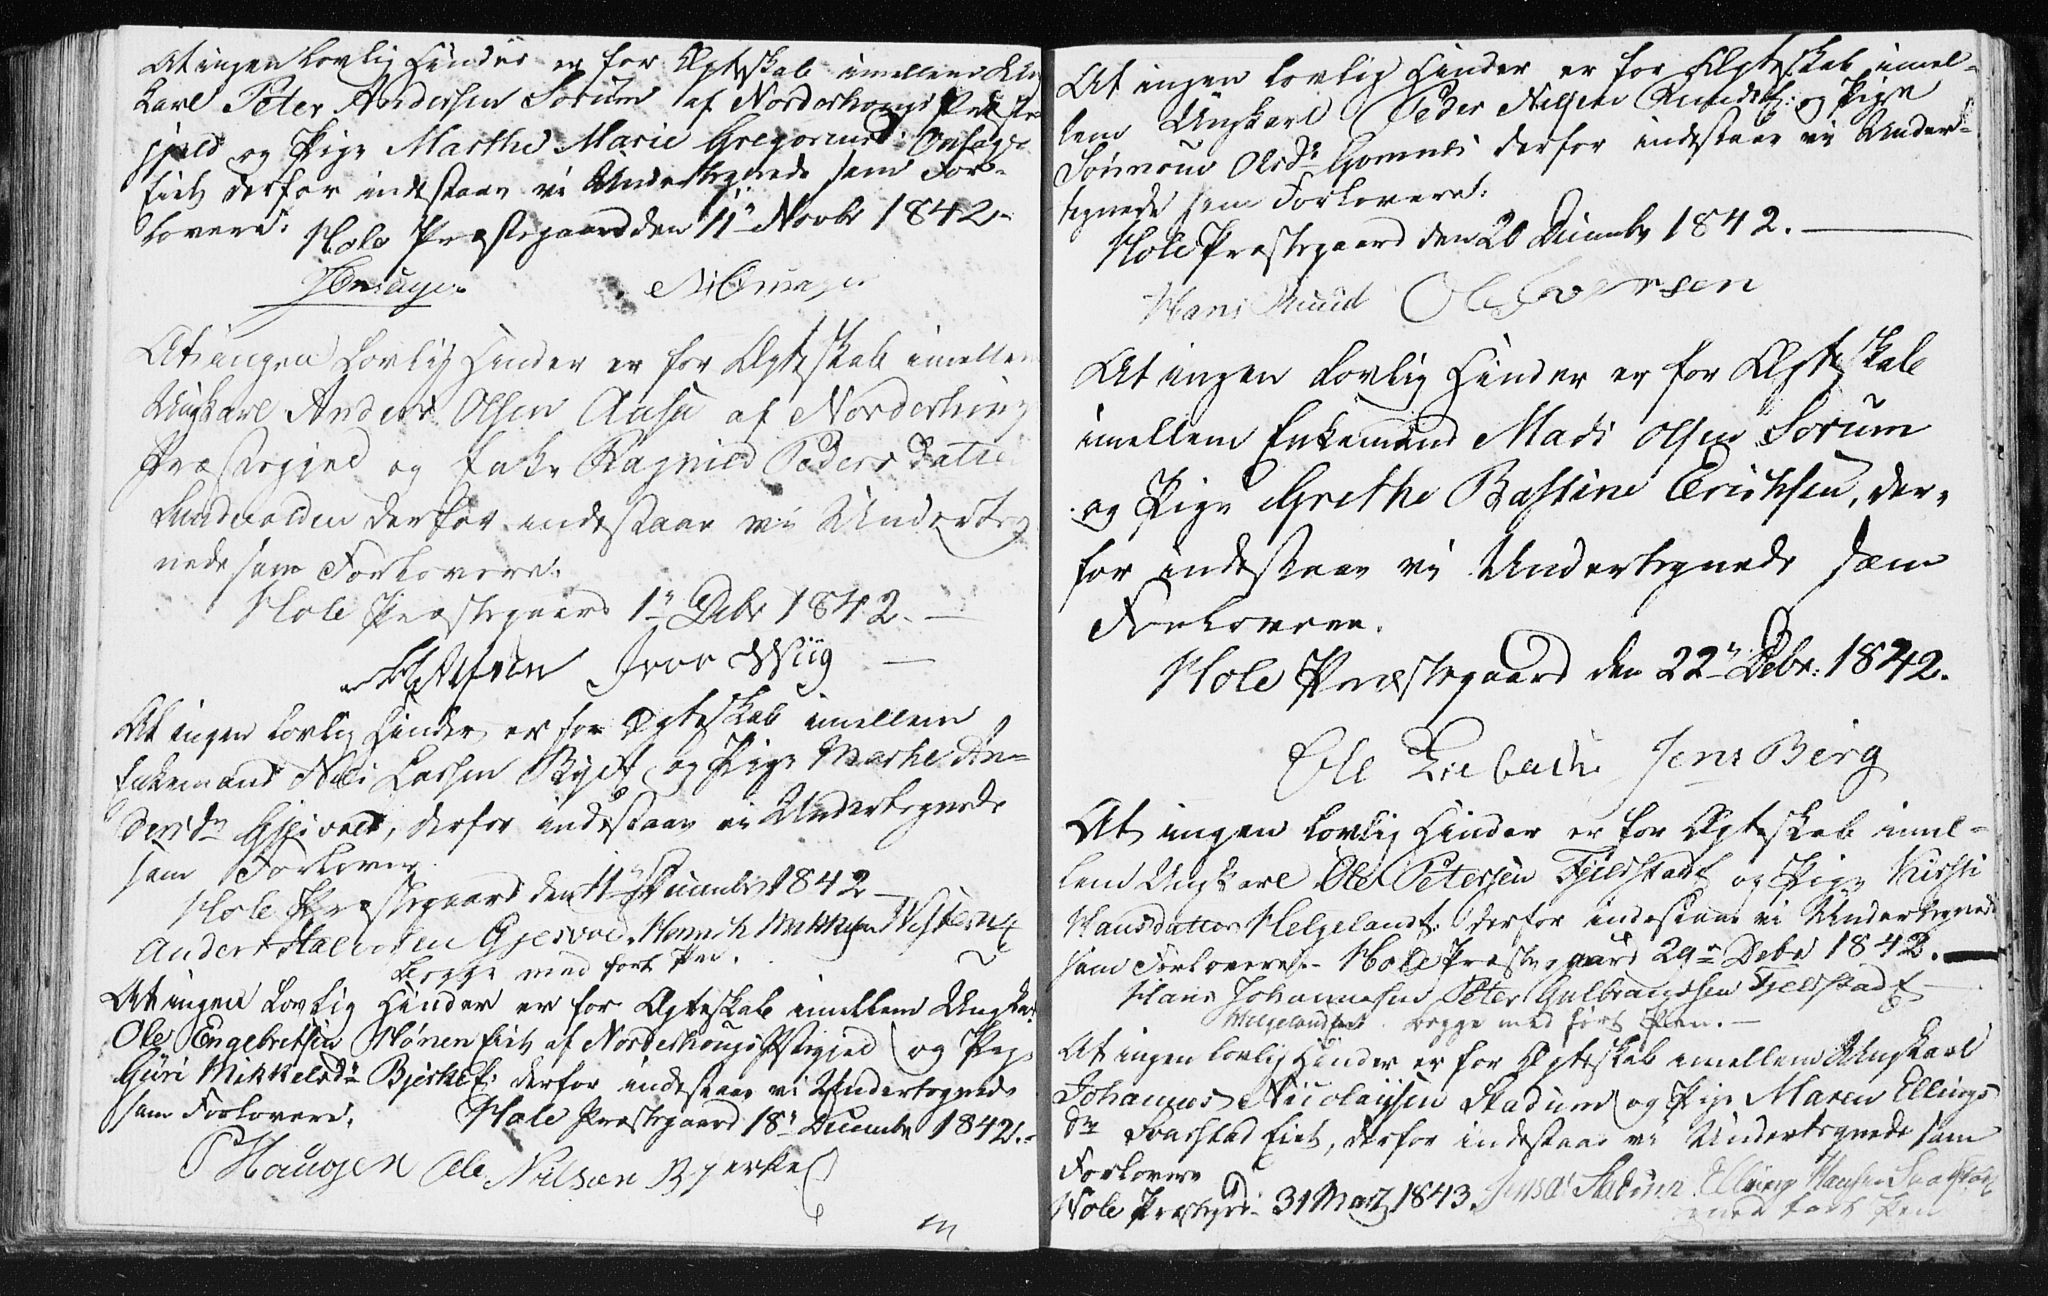 At ingen Lovlig Hinder er for Ægteskab imellem Ung
karl Peter Andersen Sørum af Norderhougs Præste
gjeld og Pige Marthe Marie Gregoriusd: Onsager
Eiet derfor indestaar vi Undertegnede som For-
lovere:
Hole Præstegaard den 11te Novbr 1842.
Onsager. N: Onsager
At ingen Lovlig Hinder er for Ægteskab imellem
Ungkarl Anders Olsen Aasa af Norderhoug
Præstegjeld og Enke Ragnild Pedersdatter
Sundvolden derfor indestaar vi Underteg
nede som Forlovere:
Hole Præstegaard 1te Debr 1842.
Iver Wiig
At ingen Lovlig Hinder er for Ægteskab imellem
Enkemand Nils Larsen Rytt og Pige Marthe An-
dersdr Gjesvold, derfor indestaar vi Undertegnede
som Forlover
Hole Præstegaard den 11te December 1842
Anders Gjesvold. Henrich Mikkelsen
begge med ført Pen.
At ingen Lovlig Hinder er for Ægteskab imellem Ungkarl
Ole Engebretsen Mønen Eiet af Norderhougs Pstegjed og Pige
Guri Mikkelsdr Bjerke E: derfor indestaar vi Undertegnede
som Forlovere.
Hole Præstegaard 18de December 1842.
P Haugen Ole Nilsen Bjerke
At ingen Lovlig Hinder er for Ægteskab imel-
lem Ungkarl Peder Nilsen Rudse: og Pige
Olsdr Gomnes derfor indestaar vi Under-
tegnede som Forlovere:
Hole Præstegaard den 20 December 1842.
Hans Ruud Ole Iversen
At ingen Lovlig Hinder er for Ægteskab
imellem Enkemand Mads Olsen Sørum
og Pige Grethe Bastine Erichsen, der-
for indestaar vi Undertegnede som
Forlovere.
Hole Præstegaard den 22de Debr: 1842.
Ole Jens Berg
At ingen Lovlig Hinder er for Ægteskab imel-
lem Ungkarl Ole Petersen Fjeldstad og Pige Kirsti
Hansdatter Helgeland: derfor indestaar vi Undertegnede
som Forlovere. Hole Præstegaard 29de Debr 1842.
Hans Johannesen Peter Gulbrandsen Fjeldstad
Helgeland begge med ført Pen.
At ingen Lovlig Hinder er for Ægteskab imellem Ungkarl
Johannes Nicolaysen Stadum og Pige Maren Ellings
dr Svarstad Eiet, derfor indestaar vi Undertegnede som
Forlovere
Hole Præstegrd: 31 Marz 1843. Stadum Elling Hansen Svarstad
med ført Pen